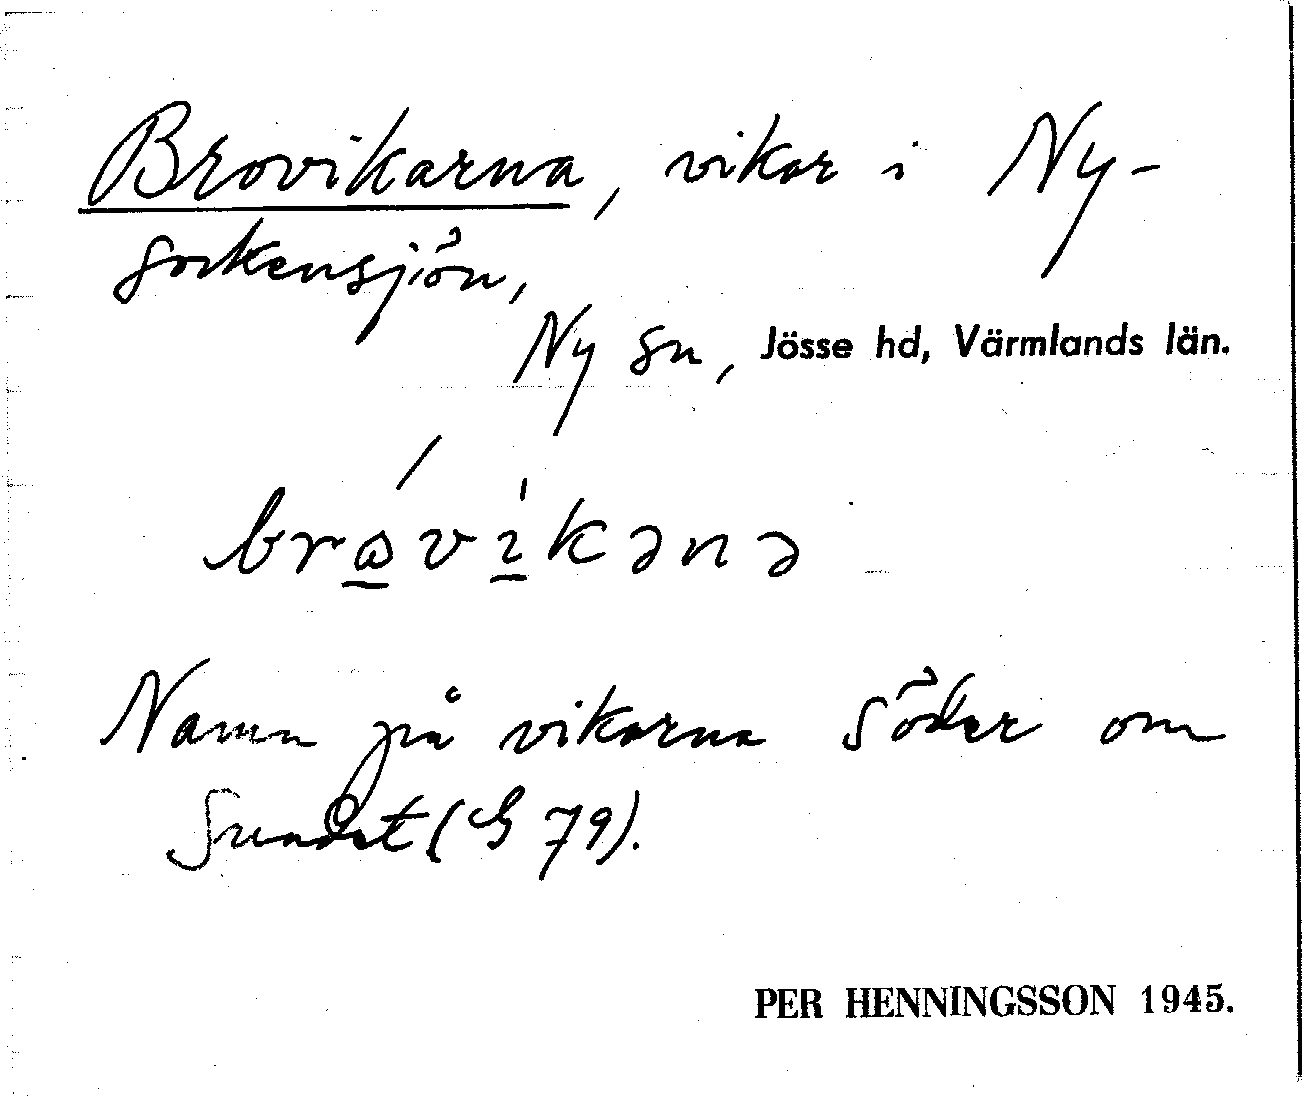 Brovikarna, vikar i Ny-
sockensjön,
Ny sn, Jösse hd, Värmlands län.
brώ̲vı̲̍kənə
Namn på vikarna söder om
Sundet (G 79).
PER HENNINGSSON 1945.